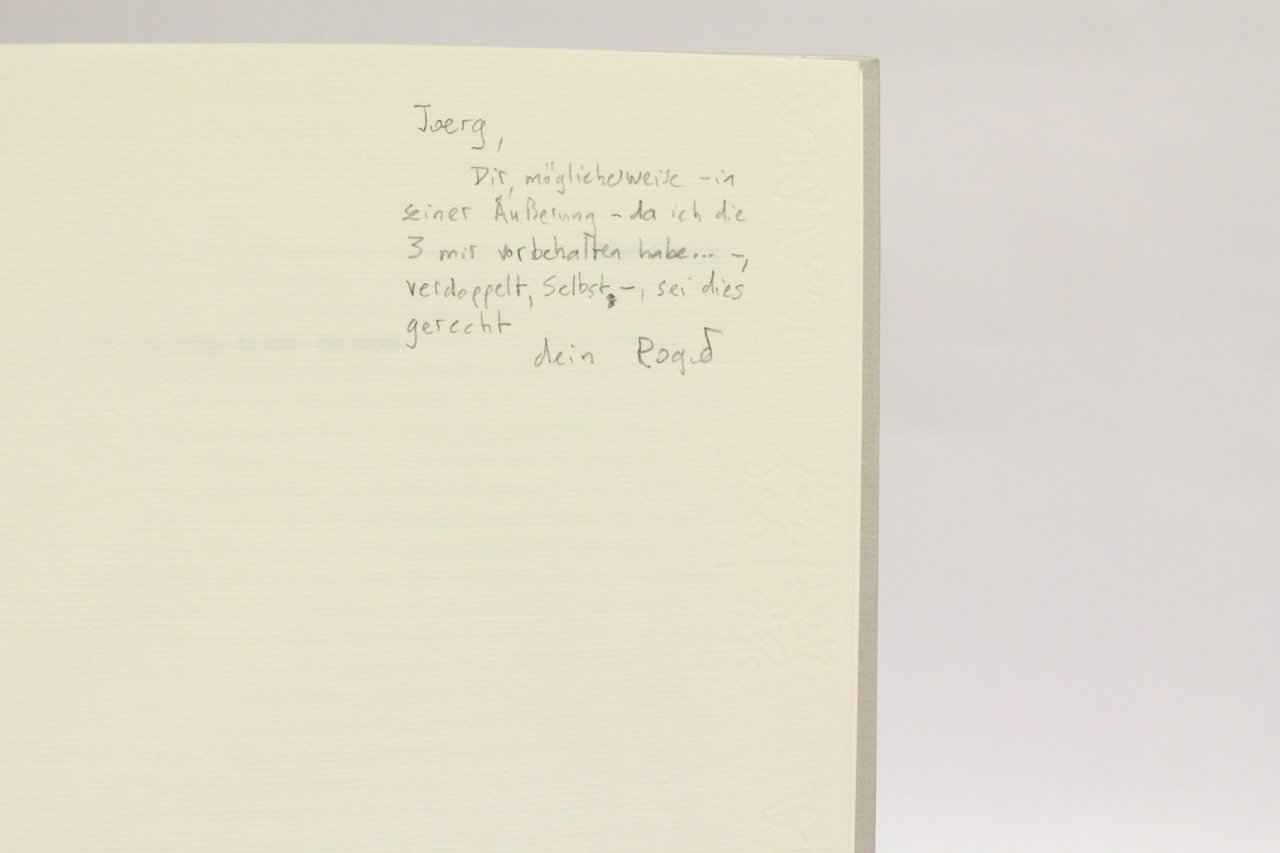 Joerg,
Dir, möglicherweise – in
seiner Äußerung – da ich die
3 mir vorbehalten habe... –,
verdoppelt, Selbst, –, sei dies
gerecht
dein